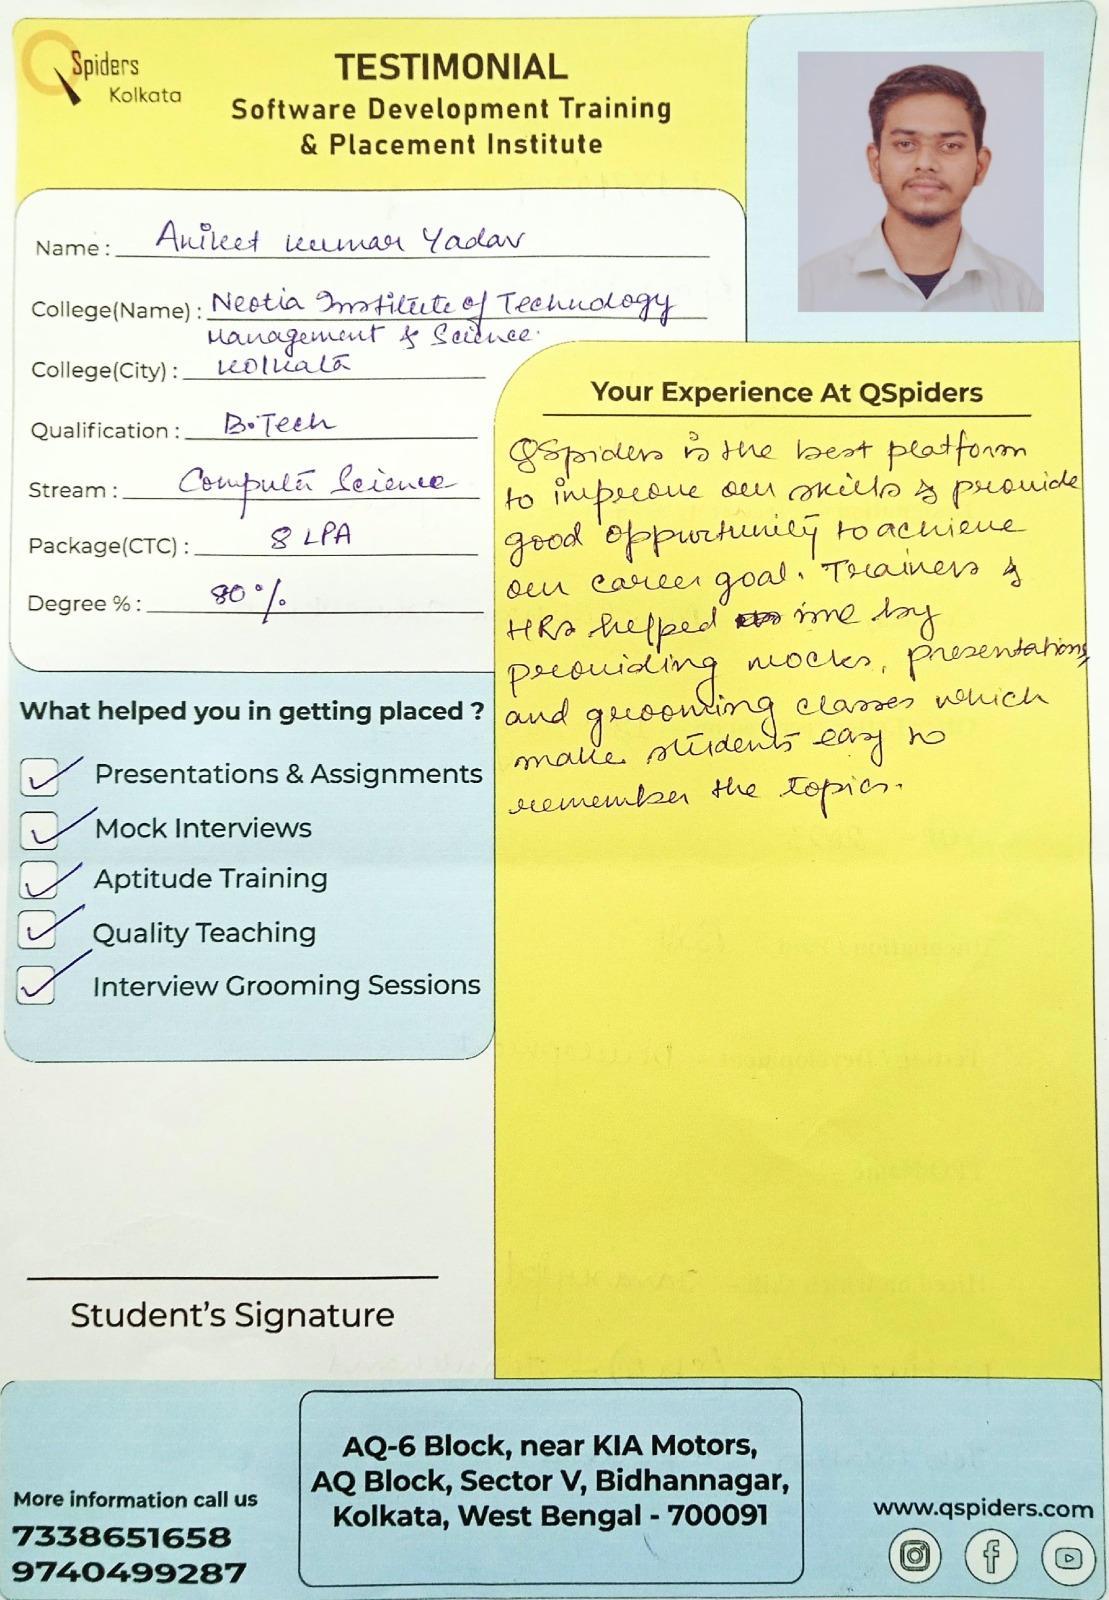 QSpiders
Kolkata
TESTIMONIAL
Software Development Training
& Placement Institute
Name : Aniket Kumar Yadav
College(Name) : Neotia Institute of Technology
Management & Science.
College(City) : Kolkata
Qualification : B.Tech
Stream : Computer Science
Package(CTC) : 8 LPA
Degree % : 80%
Your Experience At QSpiders
QSpiders is the best platform
to improve our skills & provide
good opportunity to achieve
our career goal. Trainers &
HRs helped me by
providing mocks, presentations,
and grooming classes which
make students easy to
remember the topics.
What helped you in getting placed ?
Presentations & Assignments
Mock Interviews
Aptitude Training
Quality Teaching
Interview Grooming Sessions
Student's Signature
More information call us
7338651658
9740499287
AQ-6 Block, near KIA Motors,
AQ Block, Sector V, Bidhannagar,
Kolkata, West Bengal - 700091
www.qspiders.com